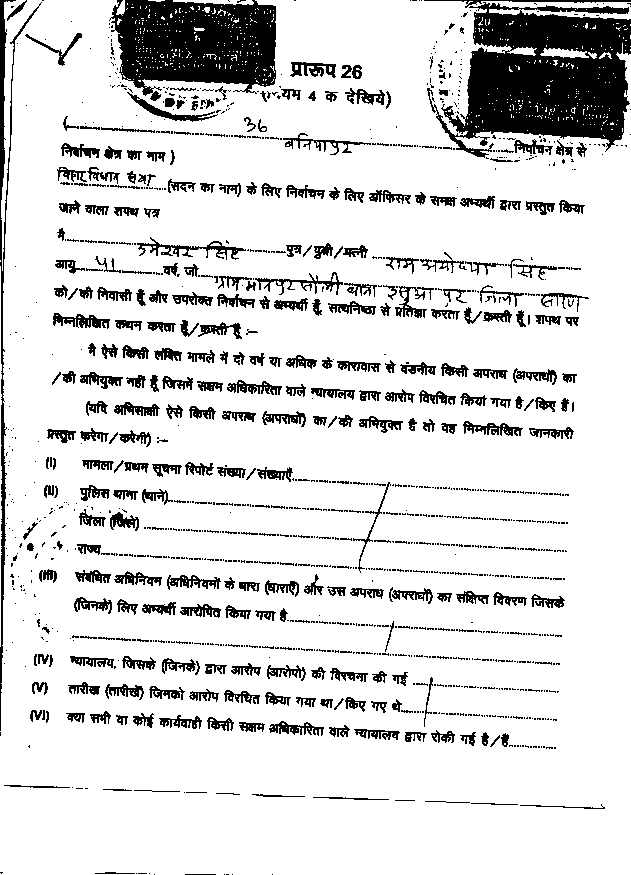 प्रारूप 26
(नियम 4 क देखिये)
(............36 बनियापुर............निर्वाचन क्षेत्र से
निर्वाचन क्षेत्र का नाम )
बिहार विधान सभा (सदन का नाम) के लिए निर्वाचन के लिए ऑफिसर के समक्ष अभ्यर्थी द्वारा प्रस्तुत किया
जाने वाला शपथ पत्र
मै............उमेश्वर सिंह............पुत्र/पुत्री/पत्नी राम अयोध्या सिंह
आयु....41....वर्ष, जो ग्राम मानपुर सौली थाना इसुआ पुर जिला सारण
को/की निवासी हूँ और उपरोक्त निर्वाचन से अभ्यर्थी हूँ, सत्यनिष्ठा से प्रतिज्ञा करता हूँ/करती हूँ। शपथ पर
निम्नलिखित कथन करता हूँ/करती हूँ :–
मै ऐसे किसी लंबित मामले में दो वर्ष या अधिक के कारावास से दंडनीय किसी अपराध (अपराधों) का
/की अभियुक्त नहीं हूँ जिसमें सक्षम अधिकारिता वाले न्यायालय द्वारा आरोप विरचित किया गया है/किए हैं।
(यदि अभिसाक्षी ऐसे किसी अपराध (अपराधों) का/की अभियुक्त है तो वह निम्नलिखित जानकारी
प्रस्तुत करेगा/करेगी) :–
(I) मामला/प्रथम सूचना रिपोर्ट संख्या/संख्याएँ............
(II) पुलिस थाना (थाने)............
जिला (जिले)............
राज्य............
(III) संबंधित अधिनियम (अधिनियमों के धारा (धाराएँ) और उस अपराध (अपराधों) का संक्षिप्त विवरण जिसके
(जिनके) लिए अभ्यर्थी आरोपित किया गया है............
(IV) न्यायालय, जिसके (जिनके) द्वारा आरोप (आरोपो) की विरचना की गई ............
(V) तारीख (तारीखें) जिनको आरोप विरचित किया गया था/किए गए थे............
(VI) क्या सभी या कोई कार्यवाही किसी सक्षम अधिकारिता वाले न्यायालय द्वारा रोकी गई है/हैं............